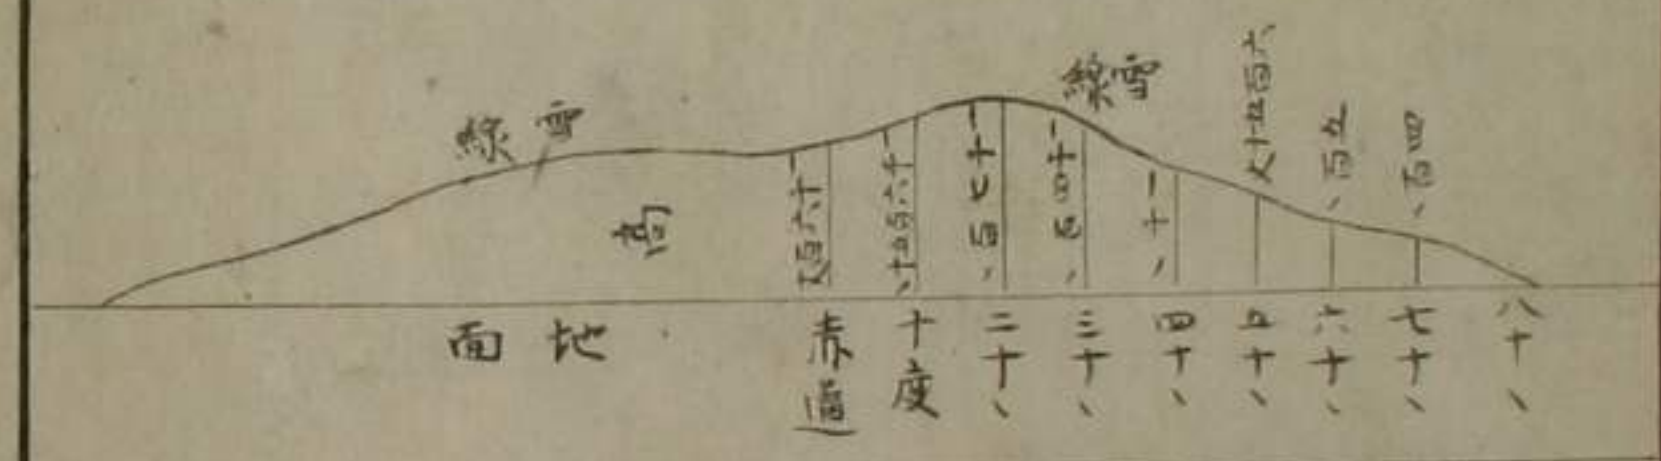 雪線
雪線
高
一千六百丈
一千六百五十、
一千七百、
一千四百、
一千、
六百五十丈
五百、
四百、
地面
赤道
十度
二十、
三十、
四十、
五十、
六十、
七十、
八十、